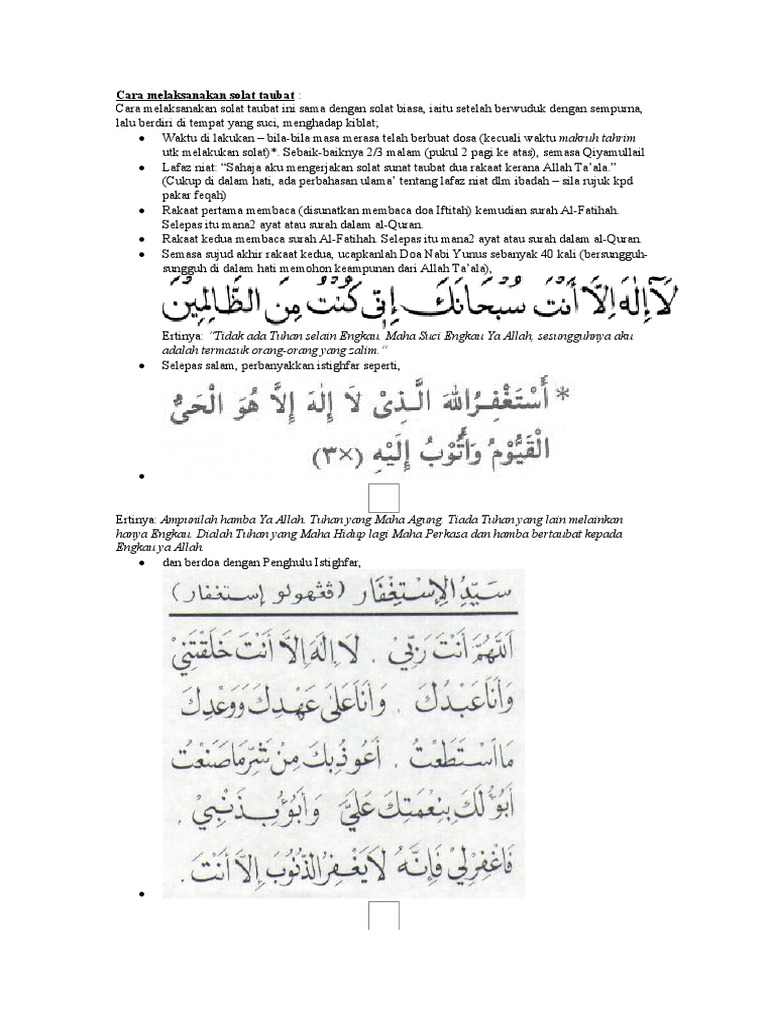 Cara melaksanakan solat taubat :
Cara melaksanakan solat taubat ini sama dengan solat biasa, iaitu setelah berwuduk dengan sempurna,
lalu berdiri di tempat yang suci, menghadap kiblat;
• Waktu di lakukan – bila-bila masa merasa telah berbuat dosa (kecuali waktu makruh tahrim
utk melakukan solat)*. Sebaik-baiknya 2/3 malam (pukul 2 pagi ke atas), semasa Qiyamullail
• Lafaz niat: “Sahaja aku mengerjakan solat sunat taubat dua rakaat kerana Allah Ta’ala.”
(Cukup di dalam hati, ada perbahasan ulama’ tentang lafaz niat dlm ibadah – sila rujuk kpd
pakar feqah)
• Rakaat pertama membaca (disunatkan membaca doa Iftitah) kemudian surah Al-Fatihah.
Selepas itu mana2 ayat atau surah dalam al-Quran.
• Rakaat kedua membaca surah Al-Fatihah. Selepas itu mana2 ayat atau surah dalam al-Quran.
• Semasa sujud akhir rakaat kedua, ucapkanlah Doa Nabi Yunus sebanyak 40 kali (bersungguh-
sungguh di dalam hati memohon keampunan dari Allah Ta’ala),
لَآ إِلٰهَ إِلَّا أَنْتَ سُبْحَانَكَ إِنِّي كُنْتُ مِنَ الظَّالِمِيْنَ
Ertinya: “Tidak ada Tuhan selain Engkau. Maha Suci Engkau Ya Allah, sesungguhnya aku
adalah termasuk orang-orang yang zalim.”
• Selepas salam, perbanyakkan istighfar seperti,
* أَسْتَغْفِرُ اللهَ الَّذِيْ لَا إِلٰهَ إِلَّا هُوَ الْحَيُّ
الْقَيُّوْمُ وَأَتُوْبُ إِلَيْهِ (×٣)
•
Ertinya: Ampunilah hamba Ya Allah. Tuhan yang Maha Agung. Tiada Tuhan yang lain melainkan
hanya Engkau. Dialah Tuhan yang Maha Hidup lagi Maha Perkasa dan hamba bertaubat kepada
Engkau ya Allah.
• dan berdoa dengan Penghulu Istighfar,
سَيِّدُ الْإِسْتِغْفَار (ڤڠهولو إستغفار)
اَللّٰهُمَّ أَنْتَ رَبِّيْ . لَا إِلٰهَ إِلَّا أَنْتَ خَلَقْتَنِيْ
وَأَنَا عَبْدُكَ . وَأَنَا عَلَى عَهْدِكَ وَوَعْدِكَ
مَا اسْتَطَعْتُ . أَعُوذُ بِكَ مِنْ شَرِّ مَا صَنَعْتُ
أَبُوْءُ لَكَ بِنِعْمَتِكَ عَلَيَّ وَأَبُوْءُ بِذَنْبِيْ .
فَاغْفِرْ لِيْ فَإِنَّهُ لَا يَغْفِرُ الذُّنُوْبَ إِلَّا أَنْتَ .
•